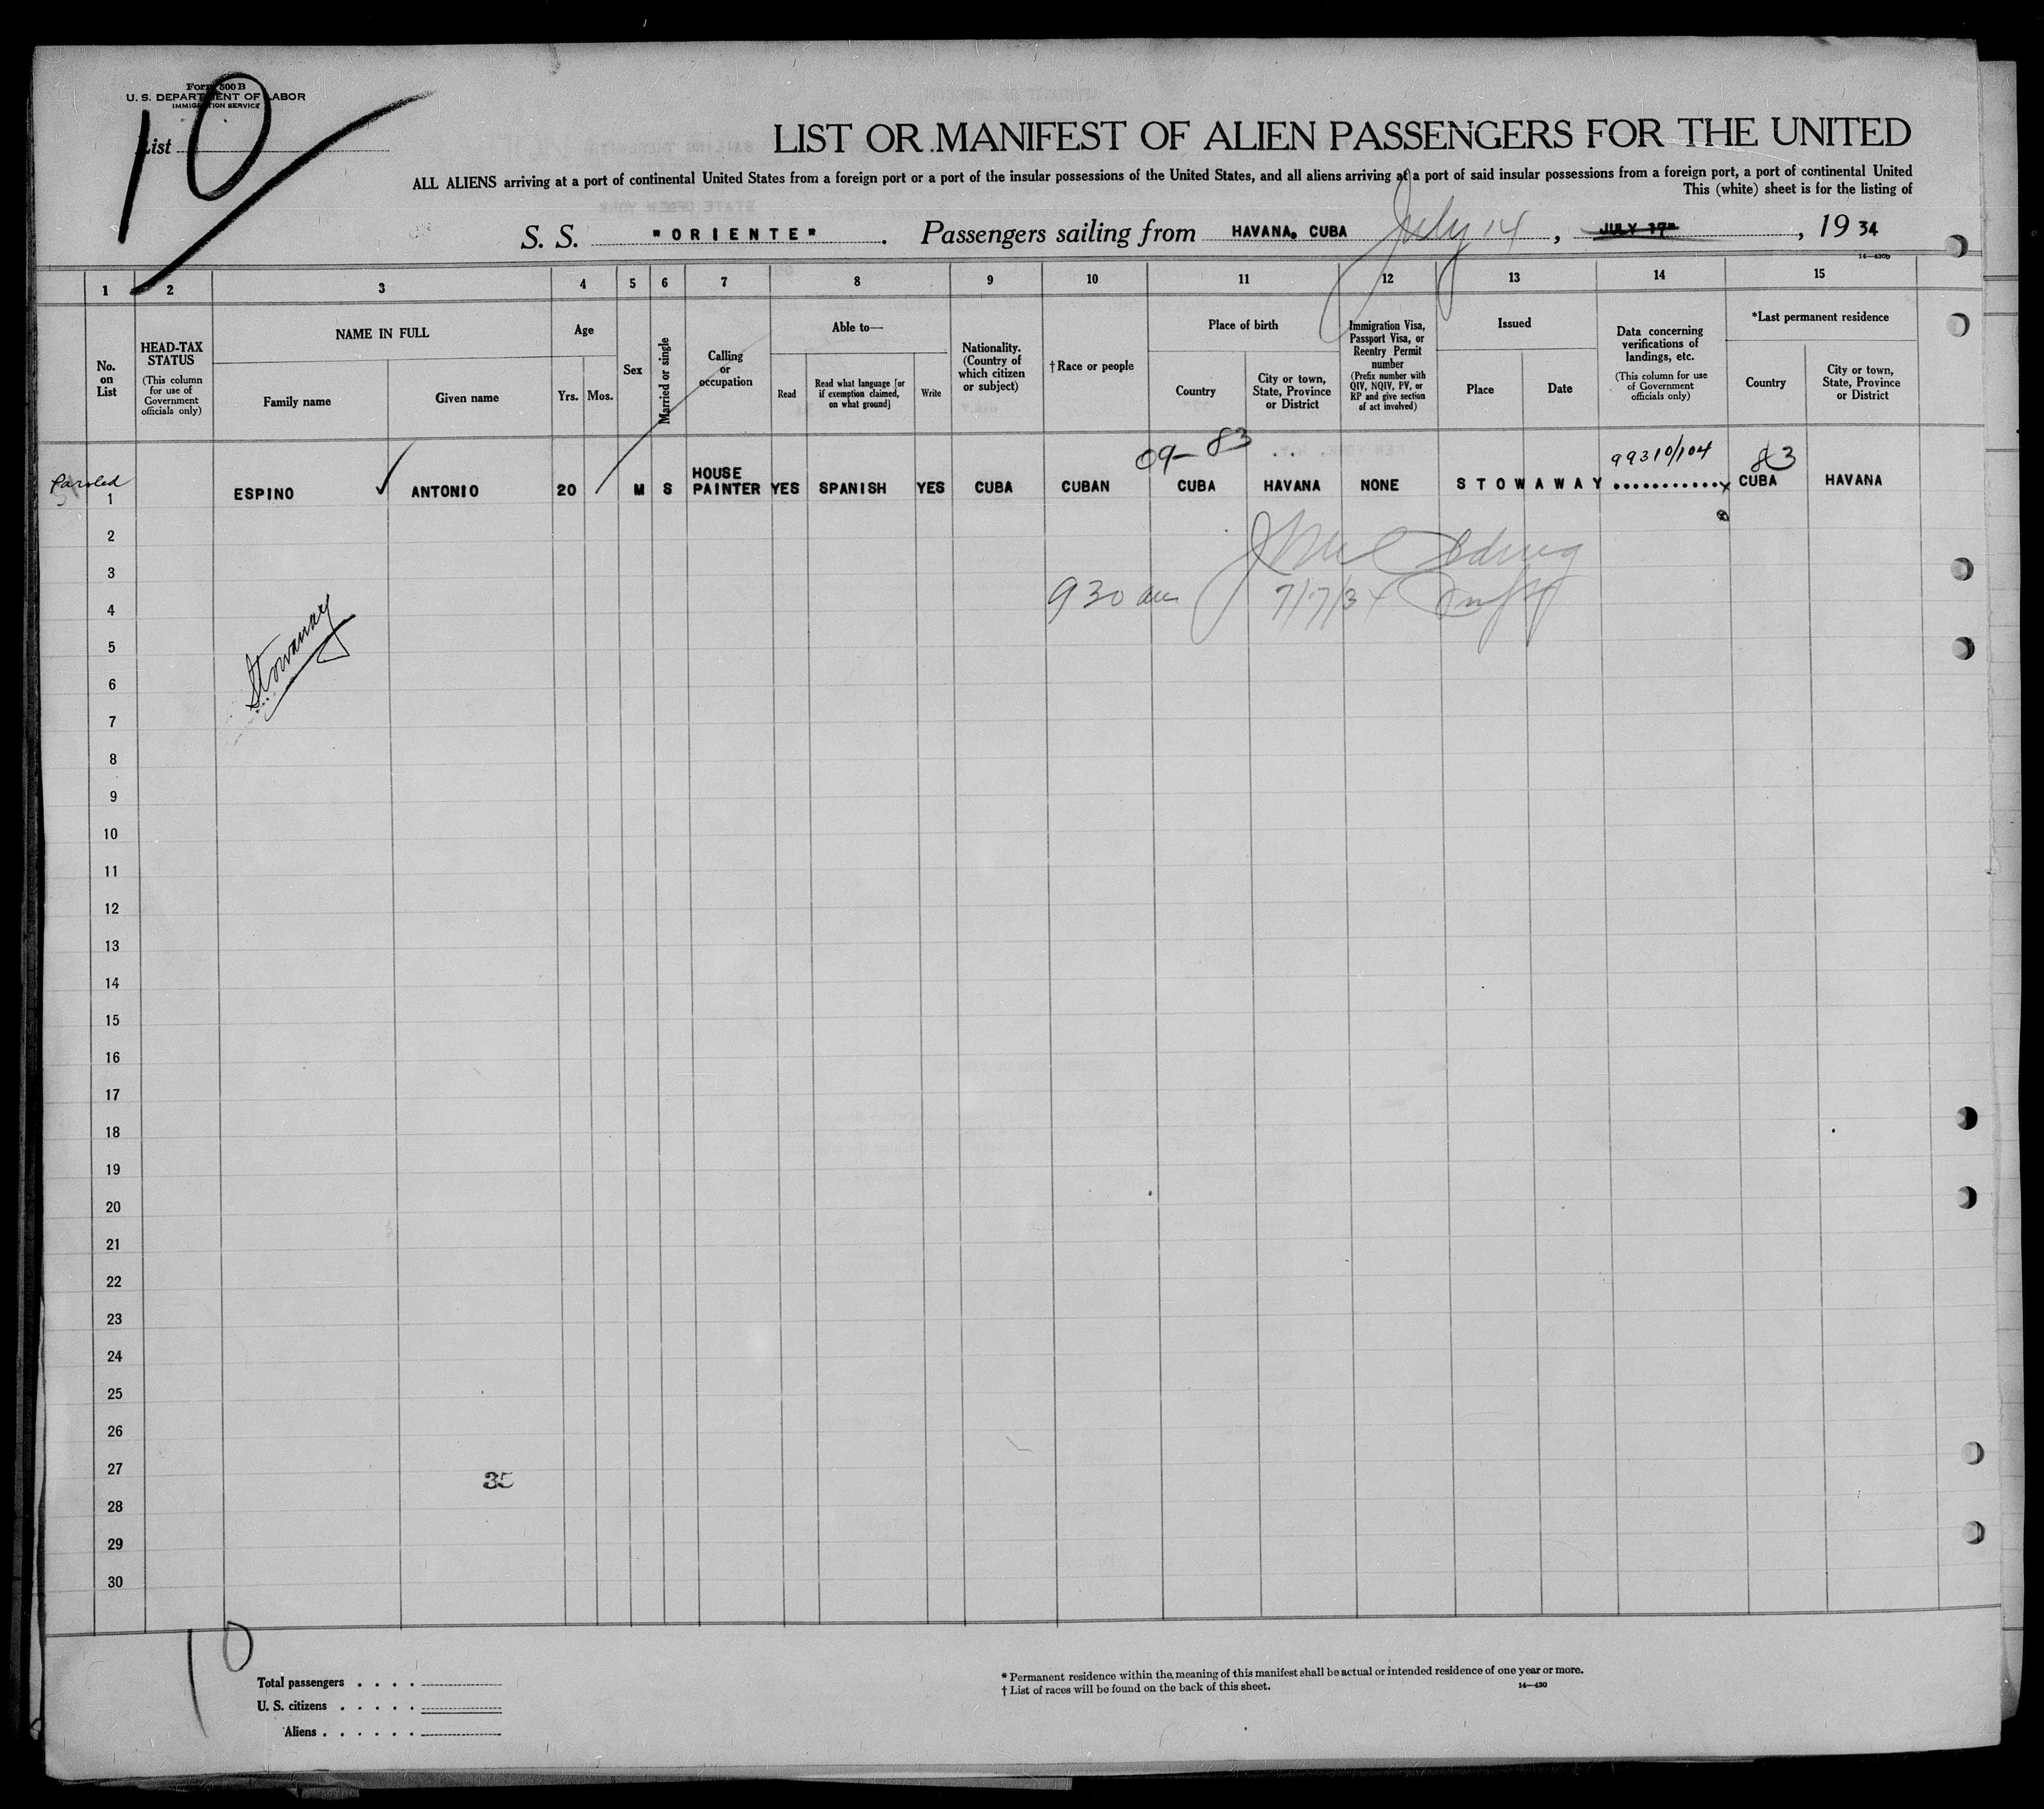 Form 500 B
U. S. DEPARTMENT OF LABOR
IMMIGRATION SERVICE
List
10
LIST OR MANIFEST OF ALIEN PASSENGERS FOR THE UNITED
ALL ALIENS arriving at a port of continental United States from a foreign port or a port of the insular possessions of the United States, and all aliens arriving at a port of said insular possessions from a foreign port, a port of continental United
This (white) sheet is for the listing of
S. S. "ORIENTE". Passengers sailing from HAVANA, CUBA July 14, JULY 17", 1934
14—430b
1 2 3 4 5 6 7 8 9 10 11 12 13 14 15
No. on List
HEAD-TAX STATUS (This column for use of Government officials only)
NAME IN FULL
Family name
Given name
Age
Yrs. Mos.
Sex
Married or single
Calling or occupation
Able to—
Read
Read what language [or if exemption claimed, on what ground]
Write
Nationality. (Country of which citizen or subject)
†Race or people
Place of birth
Country
City or town, State, Province or District
Immigration Visa, Passport Visa, or Reentry Permit number (Prefix number with QIV, NQIV, PV, or RP and give section of act involved)
Issued
Place
Date
Data concerning verifications of landings, etc. (This column for use of Government officials only)
*Last permanent residence
Country
City or town, State, Province or District
09-83
99310/104
83
Paroled
1 ESPINO ANTONIO 20 M S HOUSE PAINTER YES SPANISH YES CUBA CUBAN CUBA HAVANA NONE STOWAWAY ........... CUBA HAVANA
2
3
930 am 7/17/34
4
Stowaway
5
6
7
8
9
10
11
12
13
14
15
16
17
18
19
20
21
22
23
24
25
26
27
35
28
29
30
10
Total passengers . . . .
U. S. citizens . . . . .
Aliens . . . . . .
* Permanent residence within the meaning of this manifest shall be actual or intended residence of one year or more.
† List of races will be found on the back of this sheet.
14—430